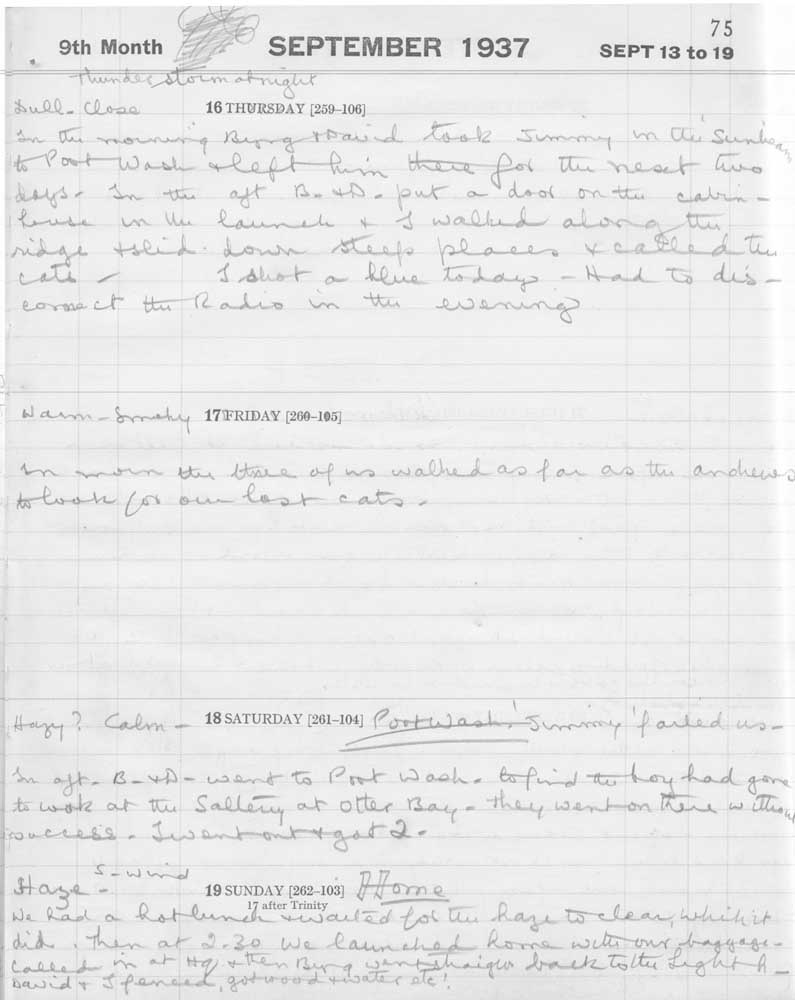 75
9th Month SEPTEMBER 1937 SEPT 13 to 19
Thunder storm at night
Dull - Close 16 THURSDAY [259–106]
In the morning Byng & David took Jimmy in the Sunbeam
to Port Wash & left him there for the next two
days - In the aft B. & D. put a door on the cabin -
house in the launch & I walked along the
ridge & slid down steep places & called the
cats - I shot a blue today - Had to dis-
connect the Radio in the evening
Warm - Smoky 17 FRIDAY [260–105]
In morn the three of us walked as far as the andrews
to look for our lost cats -
Hazy? Calm - 18 SATURDAY [261–104] Port Wash. Jimmy failed us -
In aft - B - & D - went to Port Wash - to find the boy had gone
to work at the Saltery at Otter Bay - they went on there without
success - I went out & got 2 -
S - wind
Haze - 19 SUNDAY [262–103] Home
17 after Trinity
We had a hot lunch & waited for the haze to clear, which it
did. Then at 2.30 we launched home with our baggage -
Called in at Hq & then Byng went straight back to the Light h -
David & I fenced, got wood & water etc!